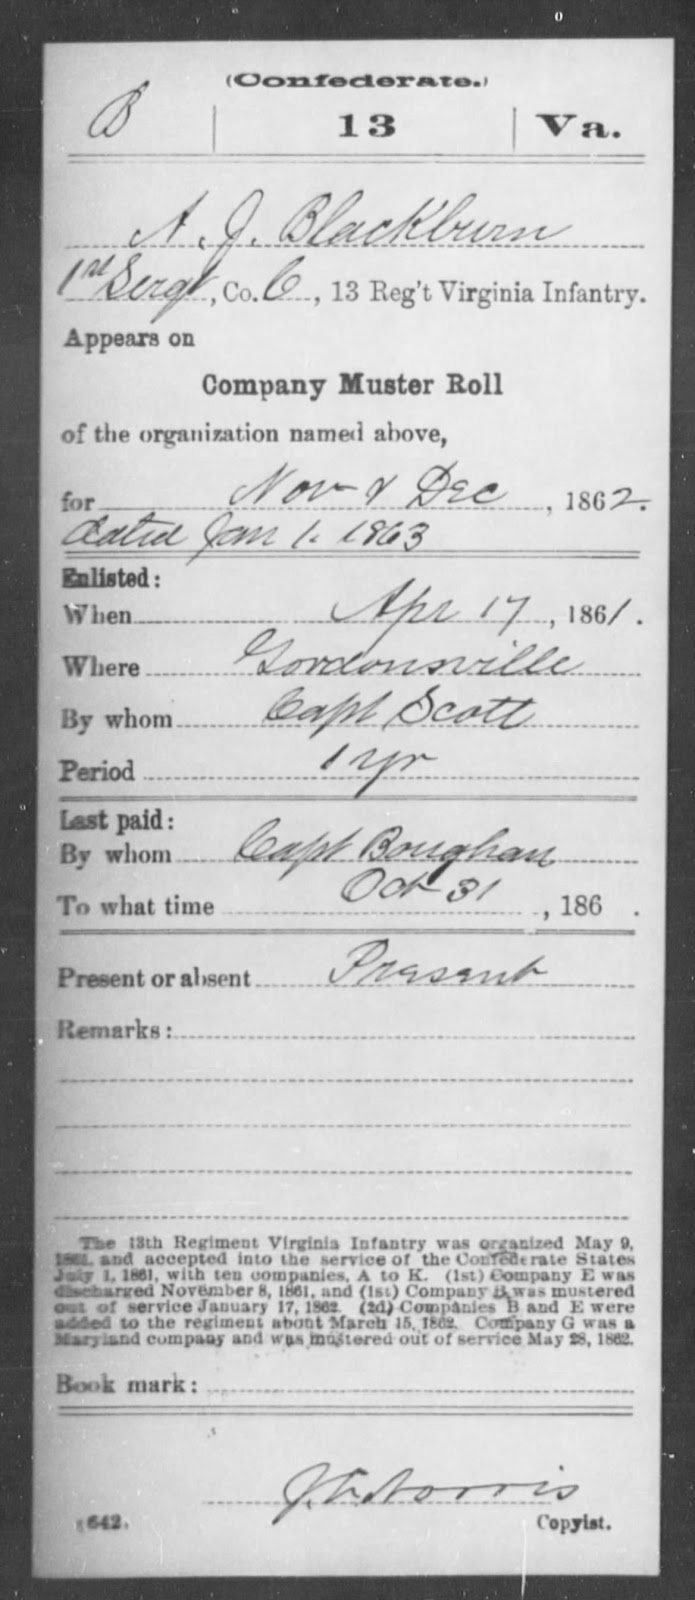 (Confederate.)
B | 13 | Va.
A. J. Blackburn
1st Sergt, Co. C, 13 Reg't Virginia Infantry.
Appears on
Company Muster Roll
of the organization named above,
for Nov & Dec, 1862.
dated Jan 1. 1863
Enlisted:
When Apr 17, 1861.
Where Gordonsville
By whom Capt Scott
Period 1 yr
Last paid:
By whom Capt Boughan
To what time Oct 31, 186 .
Present or absent Present
Remarks:
The 13th Regiment Virginia Infantry was organized May 9,
1861, and accepted into the service of the Confederate States
July 1, 1861, with ten companies, A to K. (1st) Company E was
discharged November 8, 1861, and (1st) Company B was mustered
out of service January 17, 1862. (2d) Companies B and E were
added to the regiment about March 15, 1862. Company G was a
Maryland company and was mustered out of service May 28, 1862.
Book mark:
Norris
642. Copyist.